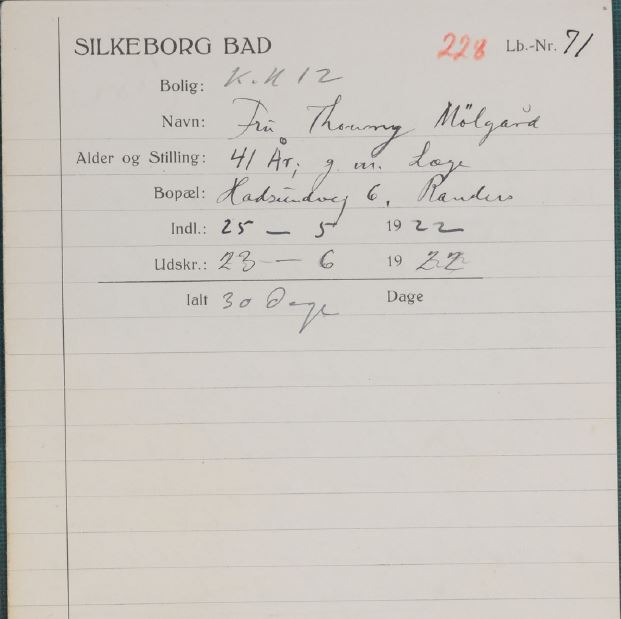 SILKEBORG BAD 228 Lb.-Nr. 71
Bolig: K.K 12
Navn: Fru Thommy Mölgård
Alder og Stilling: 41 År; g. m. Læge
Bopæl: Hadsundvej 6, Randers
Indl.: 25 — 5 1922
Udskr.: 23 — 6 1922
Ialt 30 Dage Dage